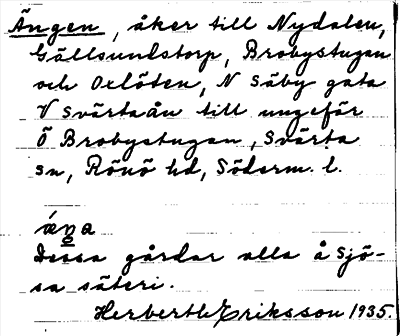 Ängen, åker till Nydalen,
Gällsundstorp, Brobystugan
och Oxlöten, N Säby gata
V Svärtaån till ungefär
Ö Brobystugan, Svärta
sn, Rönö hd, Söderm. l.
Dessa gårdar alla å Sjö-
sa säteri.
Herbert Eriksson 1935.